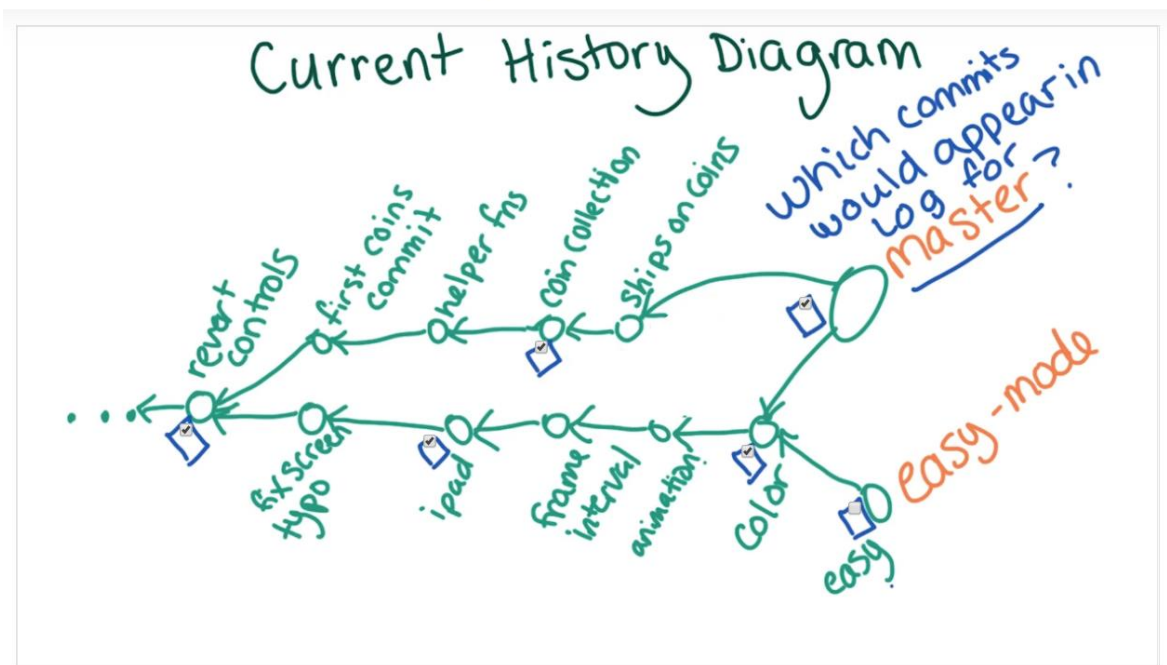 Current History Diagram
Which commits
would appear in
log for
master?
revert
controls
first coins
commit
helper fns
coin collection
ships on coins
fix screen
typo
ipad
frame
interval
animation
Color
easy
easy-mode